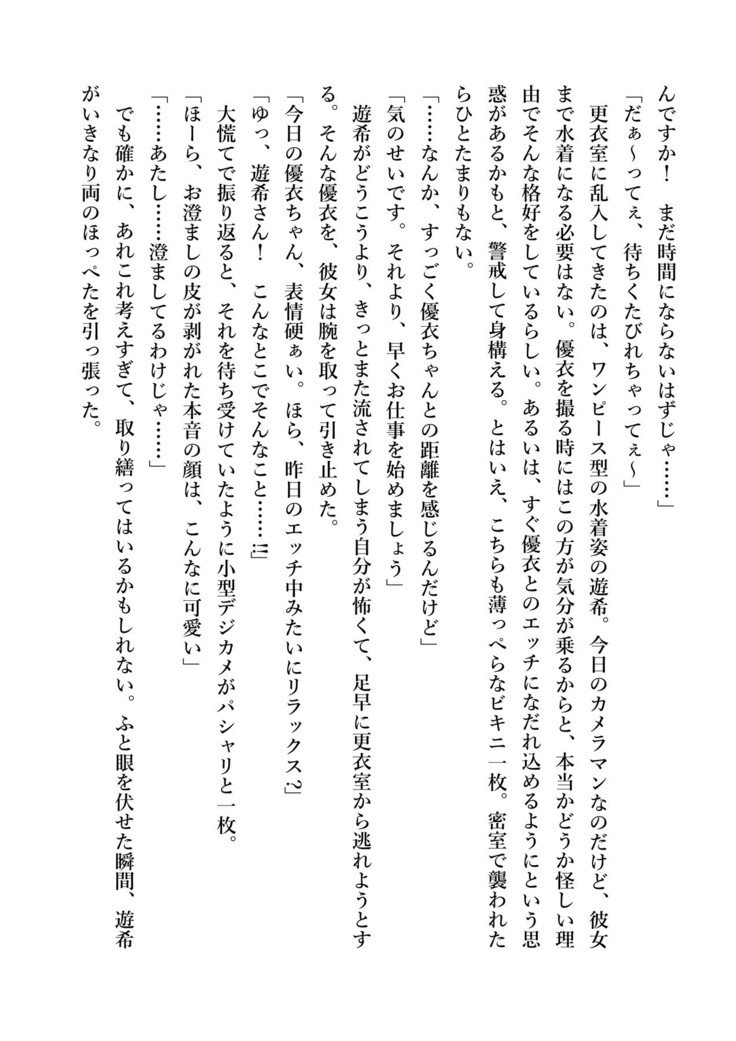 んですか！　まだ時間にならないはずじゃ……」
「だぁ～ってぇ、待ちくたびれちゃってぇ～」
　更衣室に乱入してきたのは、ワンピース型の水着姿の遊希。今日のカメラマンなのだけど、彼女
まで水着になる必要はない。優衣を撮る時にはこの方が気分が乗るからと、本当かどうか怪しい理
由でそんな格好をしているらしい。あるいは、すぐ優衣とのエッチになだれ込めるようにという思
惑があるかもと、警戒して身構える。とはいえ、こちらも薄っぺらなビキニ一枚。密室で襲われた
らひとたまりもない。
「……なんか、すっごく優衣ちゃんとの距離を感じるんだけど」
「気のせいです。それより、早くお仕事を始めましょう」
　遊希がどうこうより、きっとまた流されてしまう自分が怖くて、足早に更衣室から逃れようとす
る。そんな優衣を、彼女は腕を取って引き止めた。
「今日の優衣ちゃん、表情硬ぁい。ほら、昨日のエッチ中みたいにリラックス？」
「ゆっ、遊希さん！　こんなとこでそんなこと……!!」
　大慌てで振り返ると、それを待ち受けていたように小型デジカメがパシャリと一枚。
「ほーら、お澄ましの皮が剥がれた本音の顔は、こんなに可愛い」
「……あたし……澄ましてるわけじゃ……」
　でも確かに、あれこれ考えすぎて、取り繕ってはいるかもしれない。ふと眼を伏せた瞬間、遊希
がいきなり両のほっぺたを引っ張った。